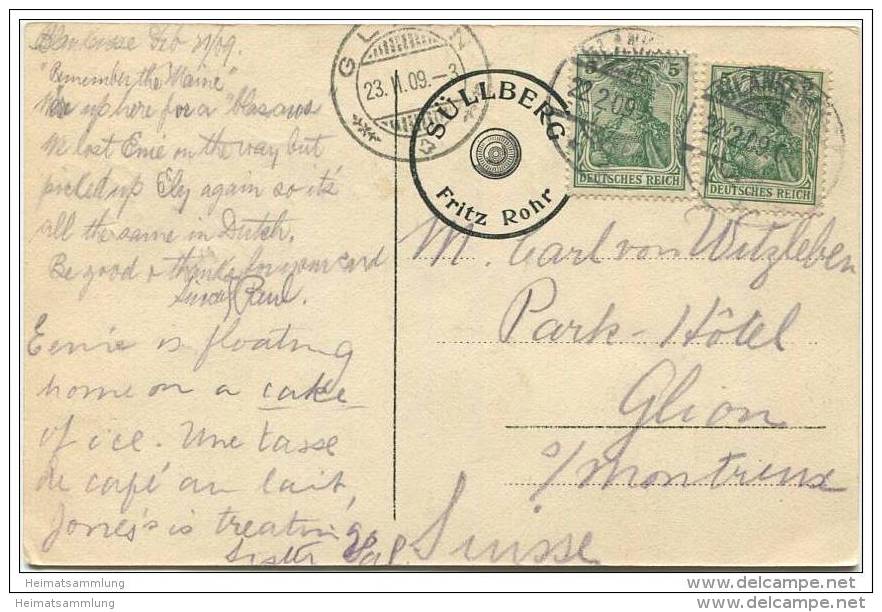 Blankenese Feb 21/09.
"Remember the Maine"
up here for a
We lost Ernie on the way but
picked up Ely again so it's
all the same in Dutch.
Be good & thanks for your card
Paul.
Ernie is floating
home on a cake
of ice. Une tasse
de café au lait,
Jones's is treating
Sister
GLION
23.II.09.-3
SÜLLBERG
Fritz Rohr
BLANKENESE
22.2.09
5 5
DEUTSCHES REICH
BLANKENESE
22.2.09
5
DEUTSCHES REICH
M. Carl von Witzleben
Park-Hôtel
Glion
s/Montreux
Suisse
Heimatsammlung
Heimatsammlung
www.delcampe.net
www.delcampe.net